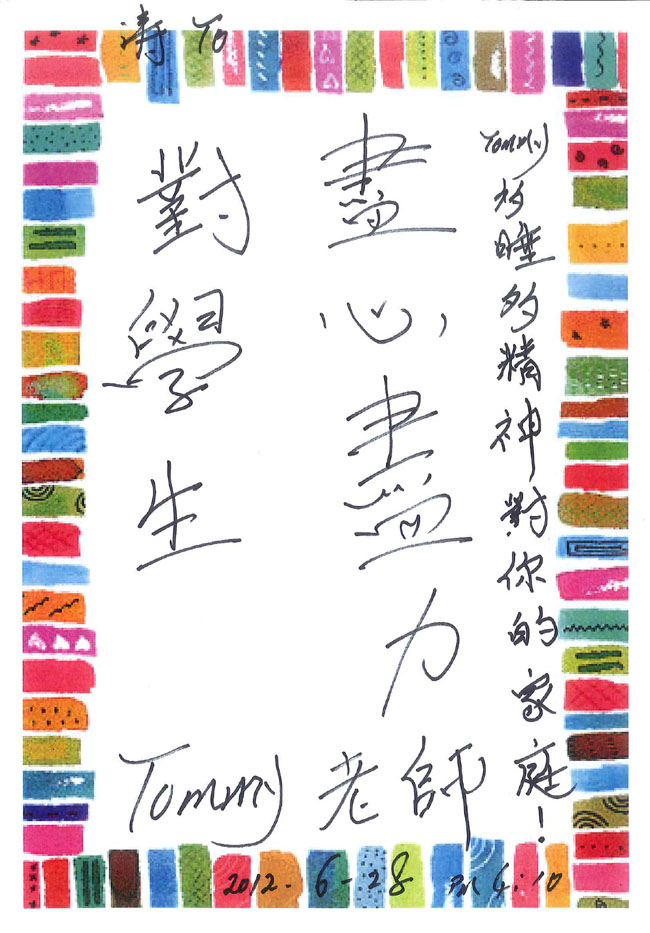 Tommy 睡的精神對你的家庭!
盡心盡力
對學生
Tommy 老師
2012. 6-28 PM 4:10